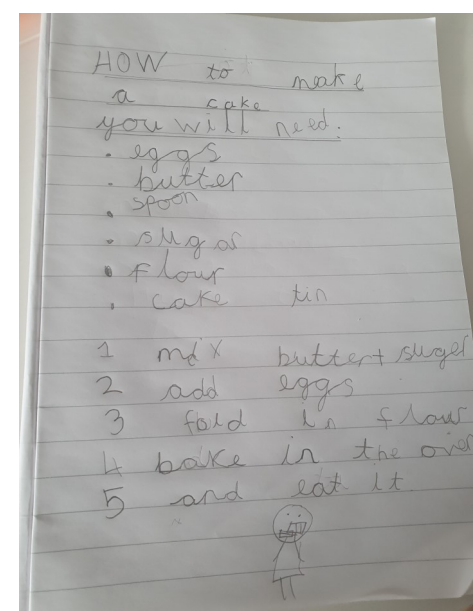 HOW to make
a cake
you will need:
• eggs
• butter
• spoon
• sugar
• flour
• cake tin
1 mix butter + suger
2 add eggs
3 fold in flour
4 bake in the oven
5 and eat it